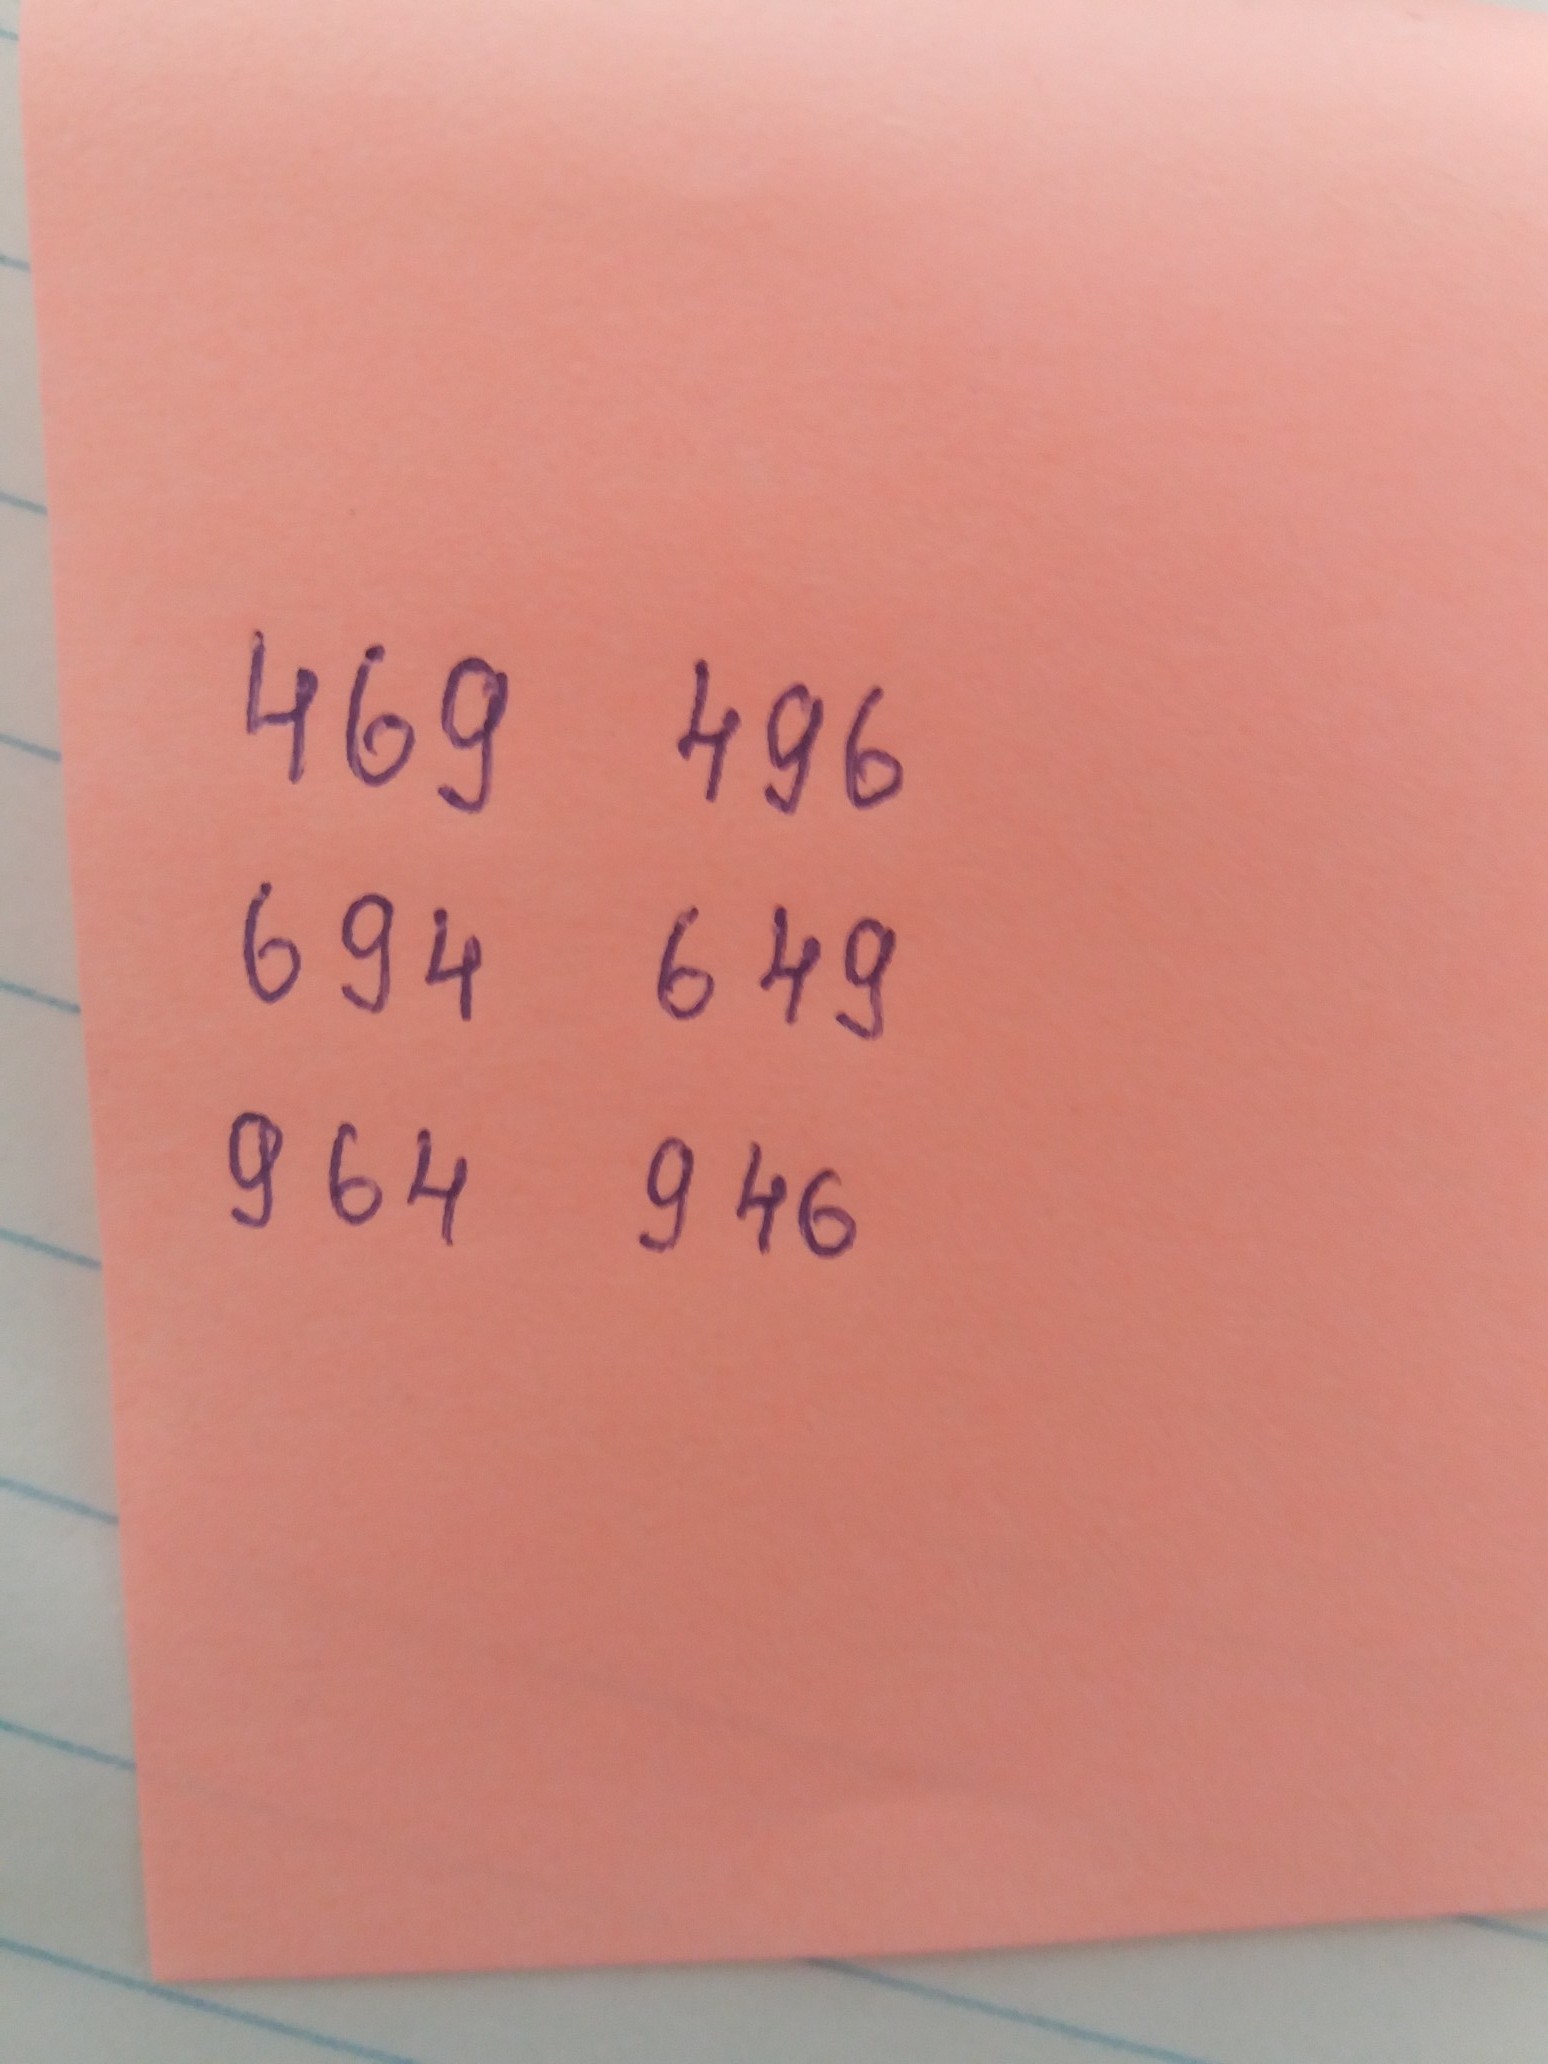 469 496
694 649
964 946